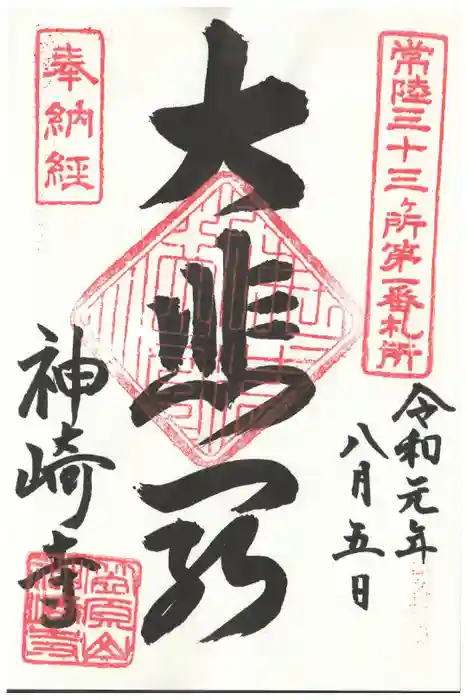 常陸三十三ヶ所第一番札所
令和元年
八月五日
大悲閣
奉納経
神崎寺